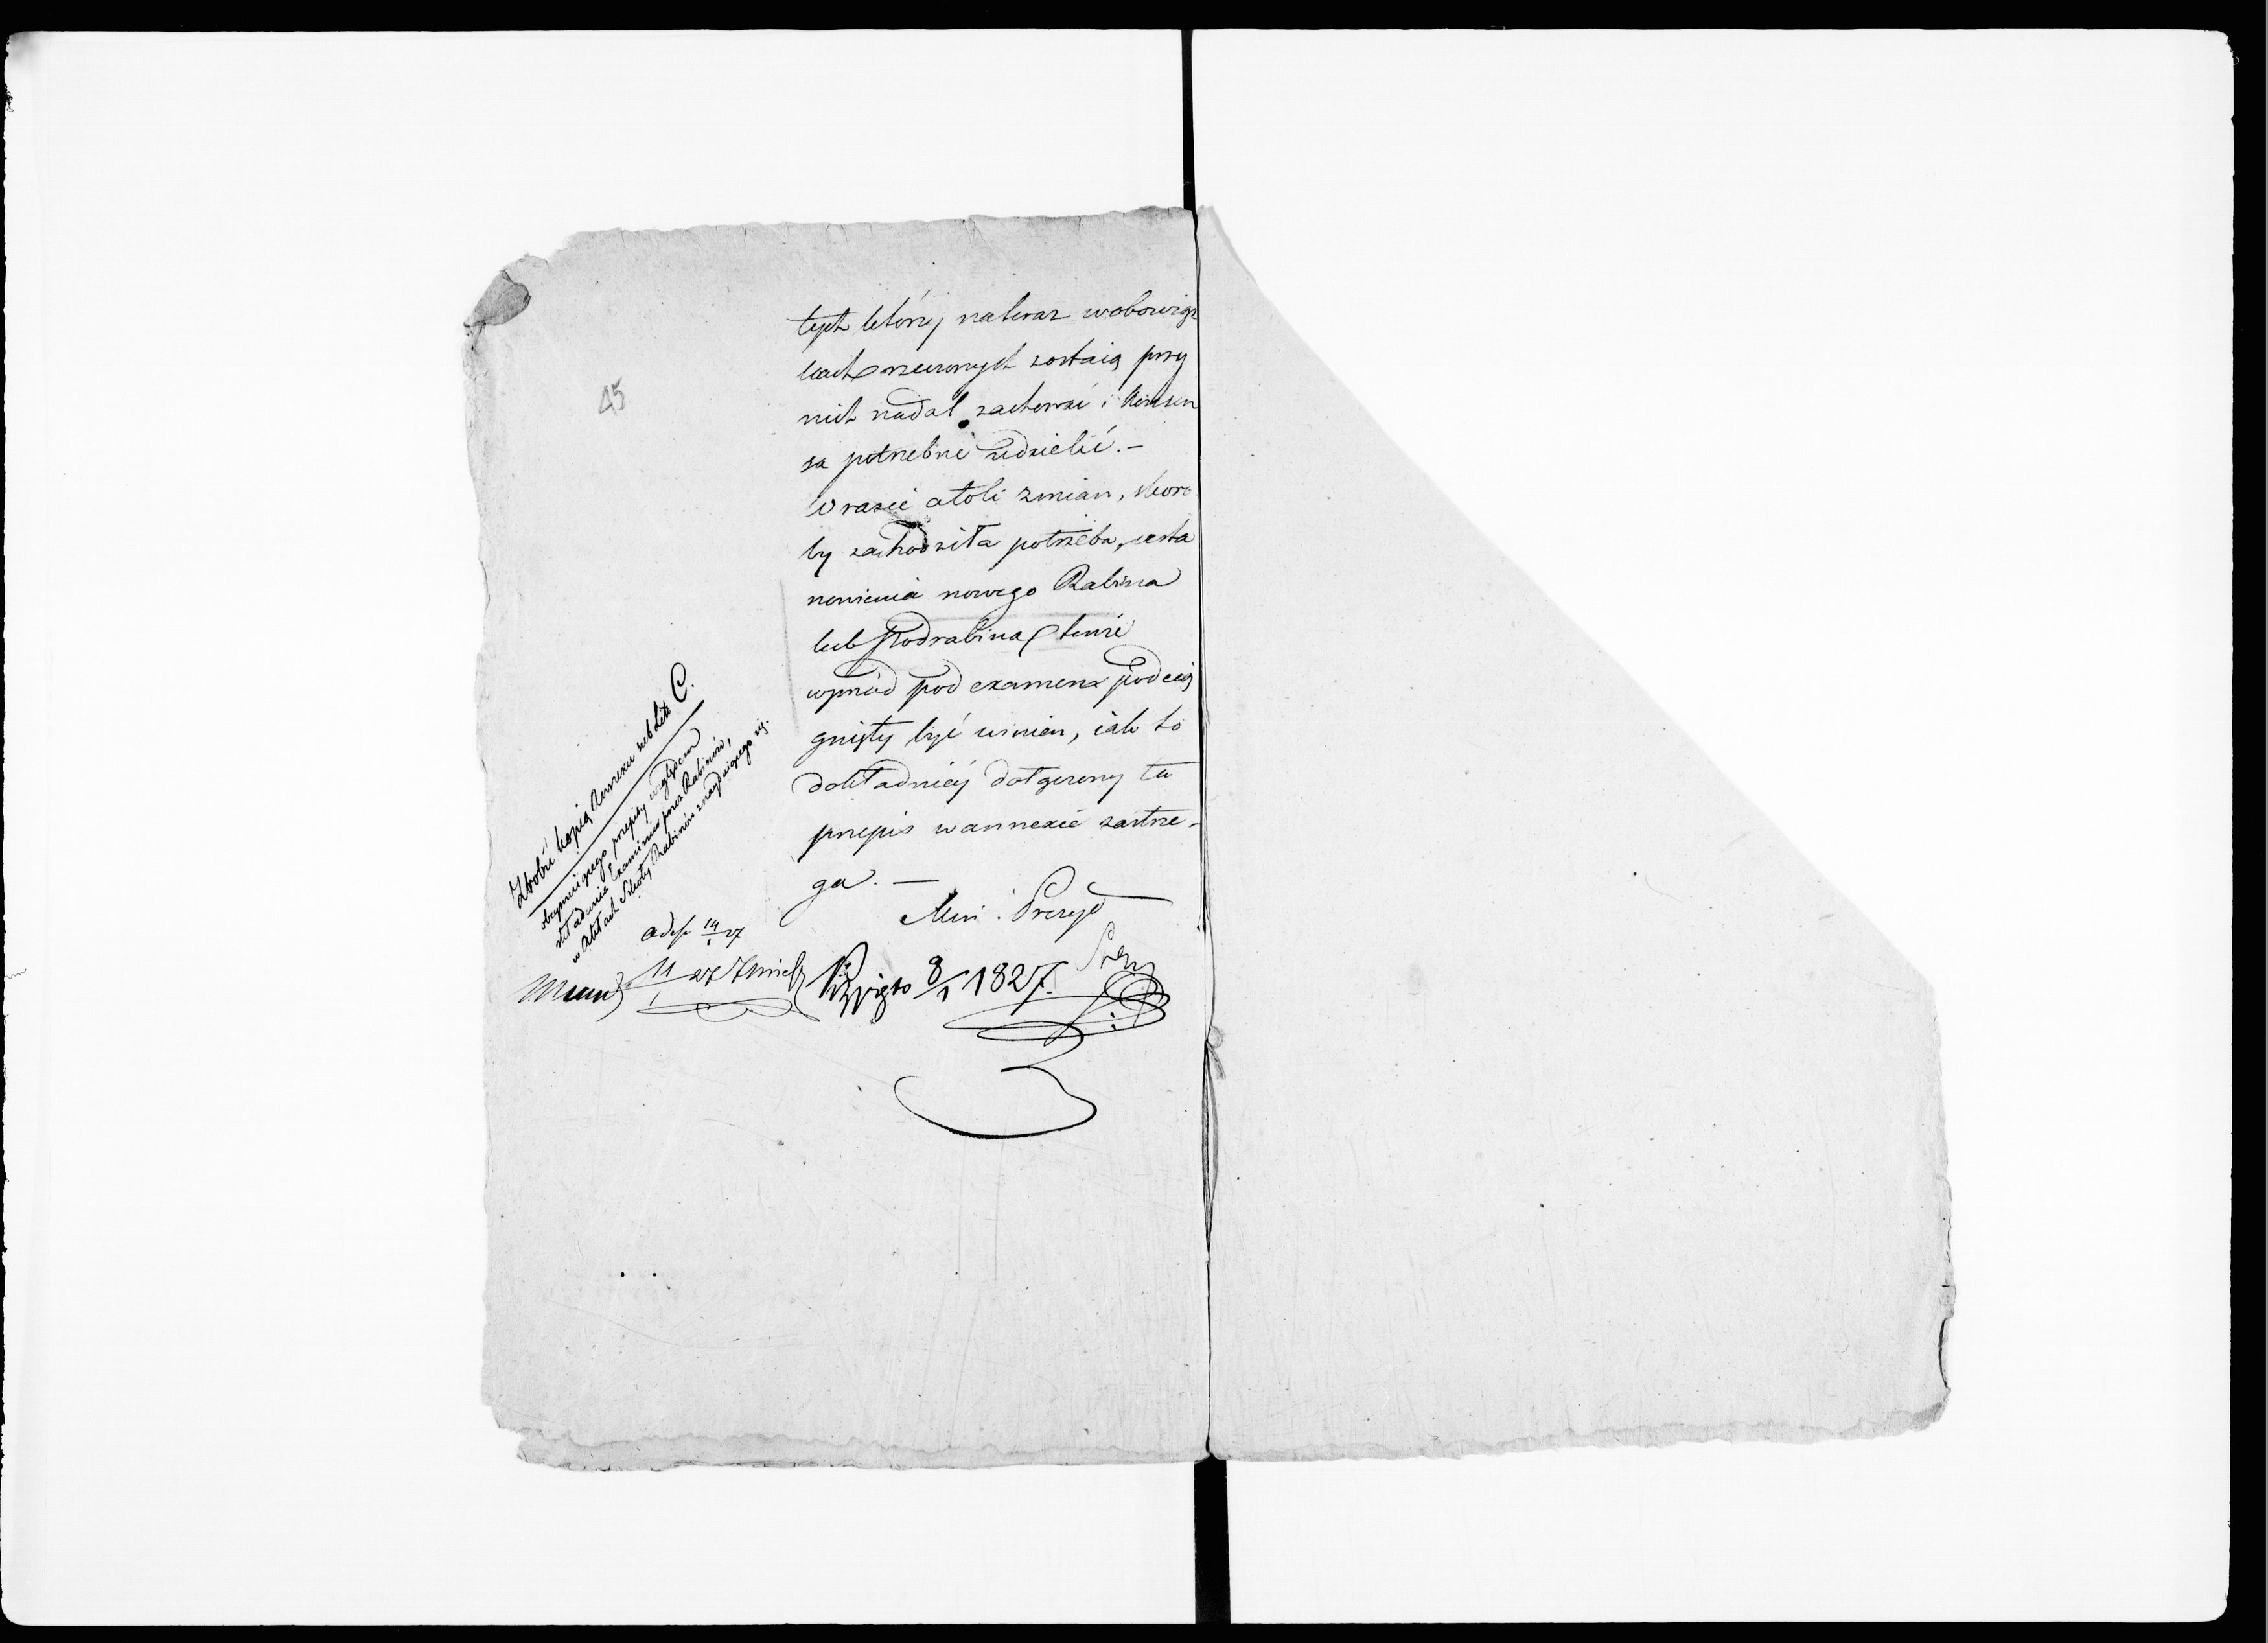 45
tych którzy na teraz w obowiąz
kach rzeczonych zostaią przy
nich nadal zachować i Konsen
sa potrzebne udzielić. –
W razie atoli zmian, skoro
by zachodziła potrzeba, usta
nowienia nowego Rabina
lub Podrabina, tenże
wprzód pod examena podcią
gnięty być winien, iak to
dokładniéj dołączony tu
przepis w annexie zastrze-
ga. —
Min. Prezyd
Zrobić kopią Annexu sub Lit C.
obeymuiącego przepisy względem
składania Examinu przez Rabinów,
w Aktach Szkoły Rabinów znayduiącego się.
14/1 27
11/1 27
Przyięto 8/1 1827.